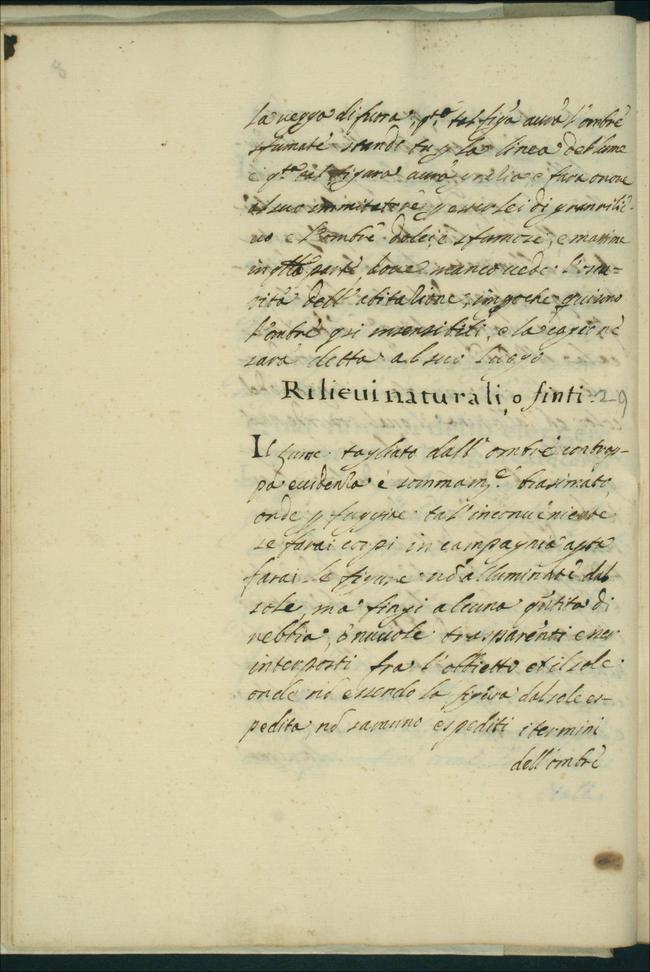 la veggo di fuora, q.to tal figa aurà l'ombrè
sfumatè stando tu p la linea del lume
è q.ta tal figura aurà gratia e farà onore
al suo immitatorè p esser lei di gran rilie-
uo e l'ombrè dolci e sfumose, e massime
in q.lla partè doue manco uede l'oscu-
rità dell'abitatione, impoche quiui sono
l'ombrè q.si insensibili, e la cagionè
sarà detta al suo luogo
Rilieui naturali, o finti. 29
Il lume tagliato dall'ombrè con trop-
pa euidenza è sommam.te biasimato,
onde p fugire tal'inconuenientè
se farai corpi in campagnia apta
farai le figure nō alluminatè dal
sole, ma fingi alcuna q.tità di
nebbia, ò nuuole trasparenti esser
interposti fra l'obbietto et il sole
onde nō essendo la figura dal sole es-
pedita, nō saranno espediti i termini
dell'ombrè